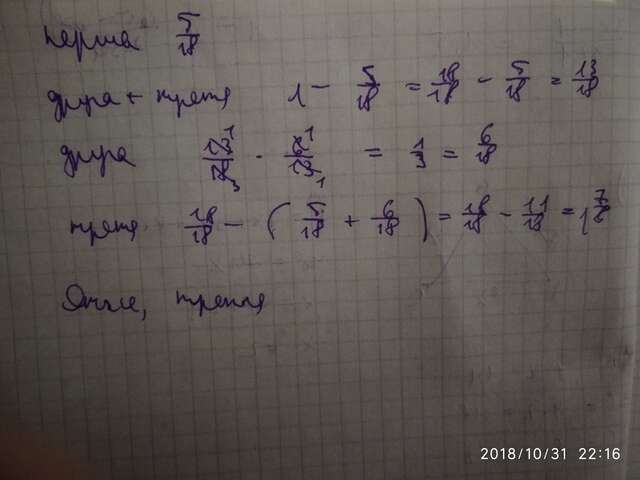 перша 5/18
друга + третя 1 - 5/18 = 18/18 - 5/18 = 13/18
друга 13/18 · 6/13 = 1/3 = 6/18
третя 18/18 - ( 5/18 + 6/18 ) = 18/18 - 11/18 = 7/18
Отже, третя
2018/10/31 22:16